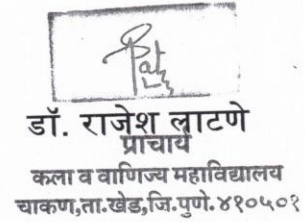 डॉ. राजेश लाटणे
प्राचार्य
कला व वाणिज्य महाविद्यालय
चाकण,ता.खेड,जि.पुणे.४१०५०१